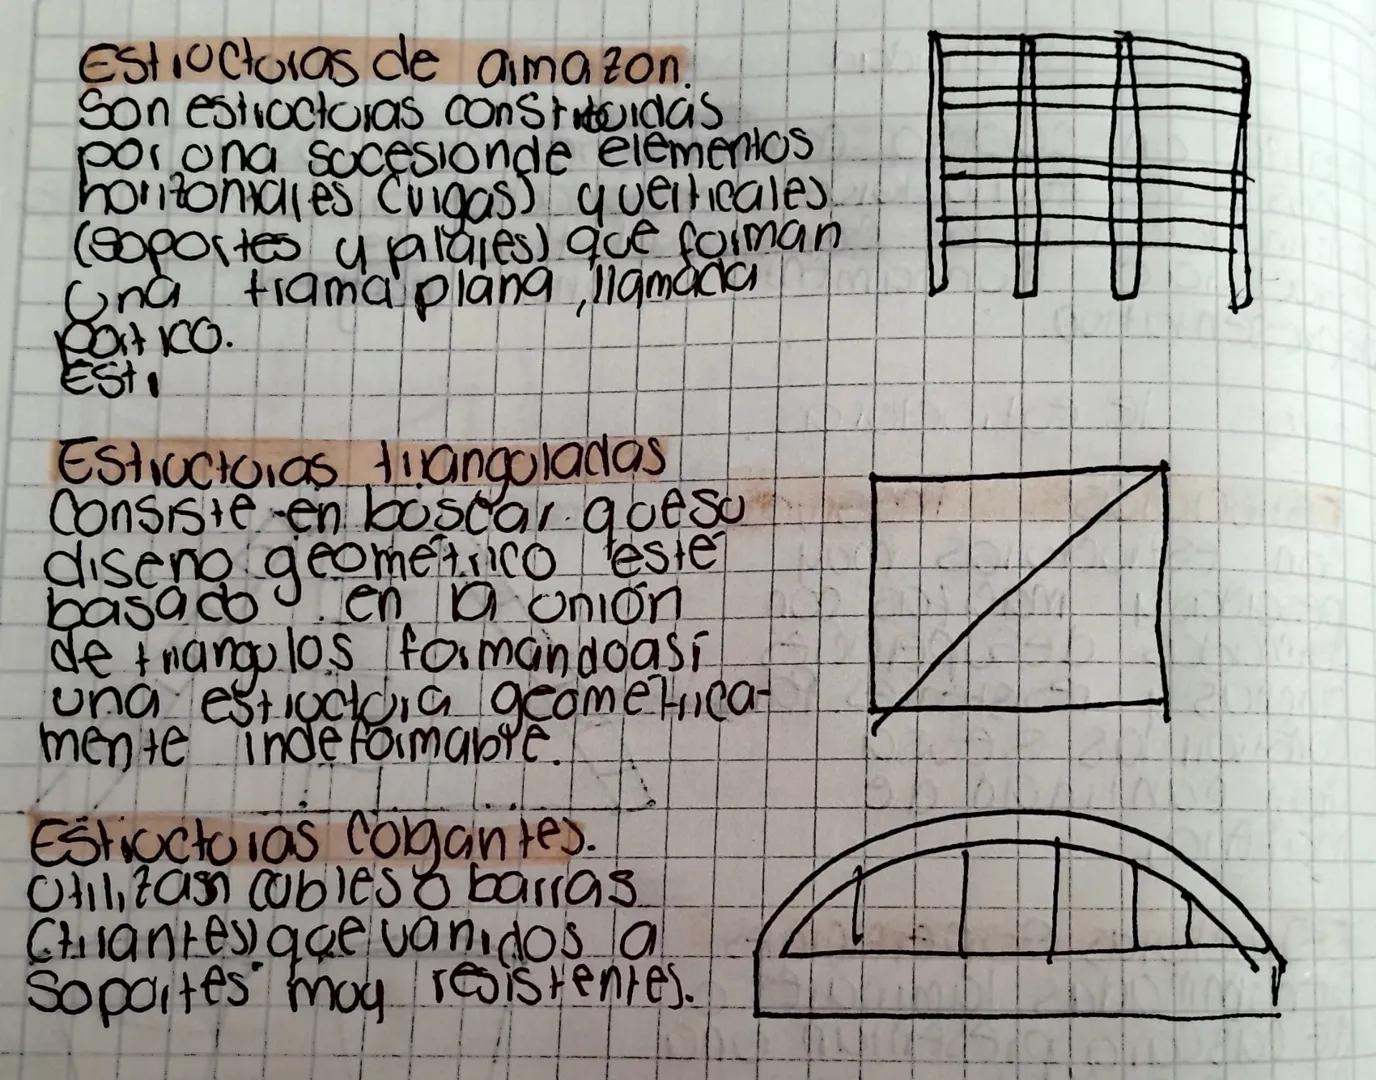 Estructuras de armazon.
Son estructuras constituidas
por una sucesionde elementos
horizontales (vigas) y verticales
(soportes y pilares) que forman
una trama plana, llamada
portico.
Estr
Estructuras trianguladas
Consiste en buscar que su
diseno geométrico esté
basado en la unión
de triangulos formandoasí
una estructura geometrica-
mente indeformable.
Estructuras Colgantes.
Utilizan cables o barras
(tirantes) que van idos a
Soportes muy resistentes.